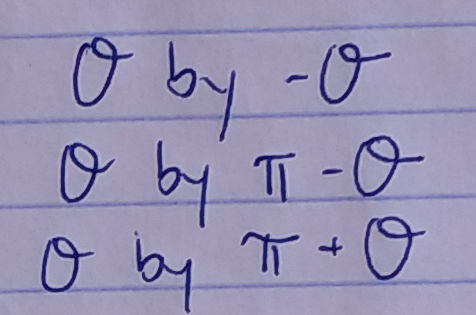 θ by -θ
θ by π - θ
θ by π + θ